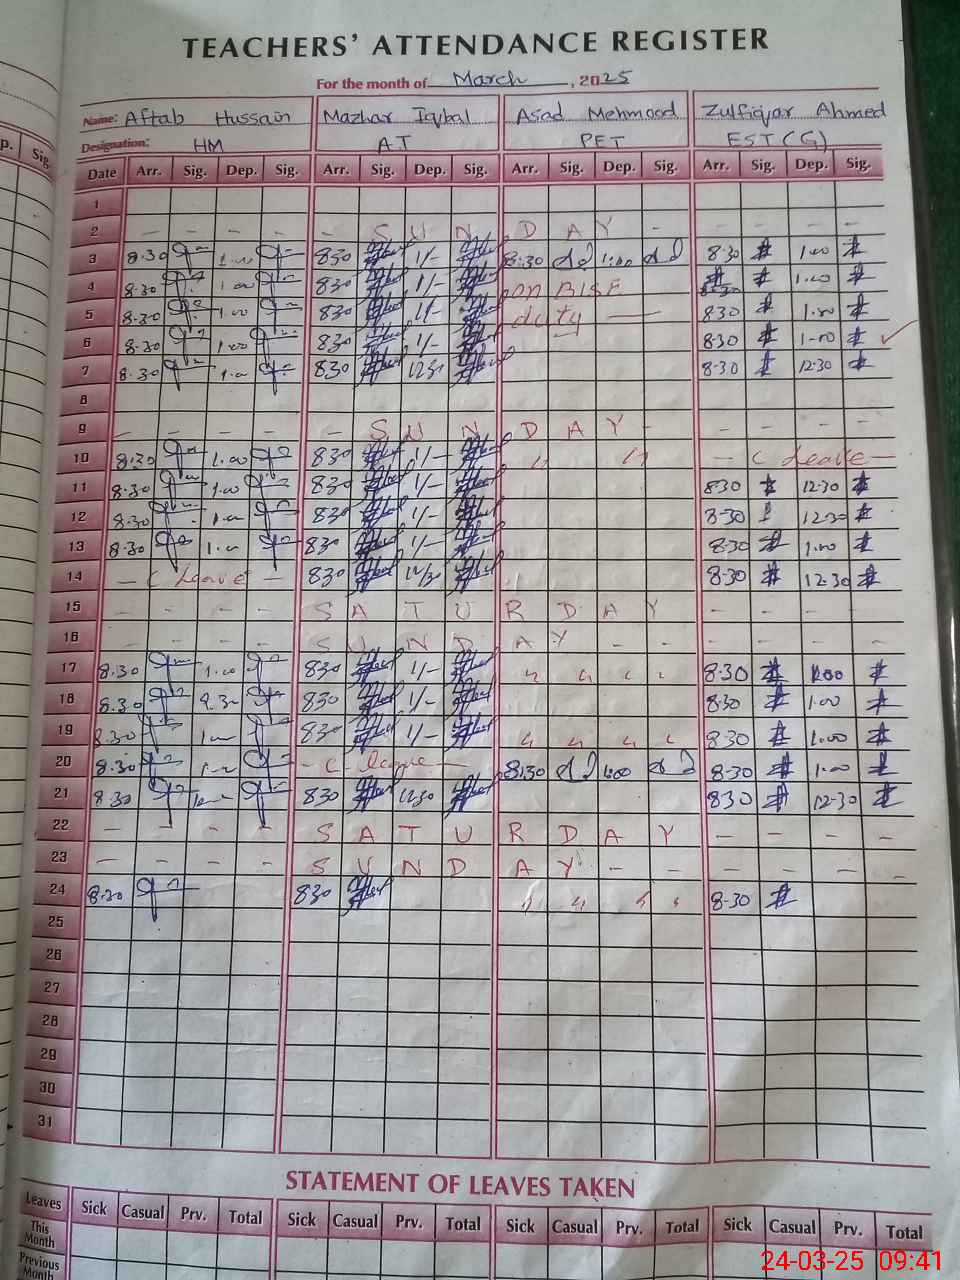 TEACHERS' ATTENDANCE REGISTER
For the month of March, 2025
Name: Aftab Hussain Mazhar Iqbal Asad Mehmood Zulfiqar Ahmed
Designation: HM AT PET EST(G)
p. Sig. Date Arr. Sig. Dep. Sig. Arr. Sig. Dep. Sig. Arr. Sig. Dep. Sig. Arr. Sig. Dep. Sig.
1
2 - - - - - S U N D A Y - - - - -
3 8:30 1.00 830 1/- 8:30 1:00 8.30 1.00
4 8.30 1.00 830 1/- on BISE 1.00
5 8.30 1.00 830 1/- duty — 830 1.00
6 8.30 1.00 830 1/- 8.30 1-00
7 8.30 1.00 830 1230 8.30 12.30
8
9 - - - - - S U N D A Y - - - - -
10 8.30 1.00 830 1/- - C Leave -
11 8.30 1.00 830 1/- 830 12.30
12 8.30 1.00 830 1/- 8-30 12.30
13 8.30 1.00 830 1/- 8.30 1.00
14 - C Leave - 830 12/30 8-30 12.30
15 - - - - S A T U R D A Y - - - -
16 - - - - S U N D A Y - - - - - -
17 8.30 1.00 830 1/- 8-30 1.00
18 8.30 830 1/- 8.30 1.00
19 8.30 830 1/- 8.30 1.00
20 8.30 - C. leave - 8:30 1:00 8-30 1.00
21 8.30 830 1230 830 12-30
22 - - - - S A T U R D A Y - - - -
23 - - - - S U N D A Y - - - - - -
24 8.30 830 8-30
25
26
27
28
29
30
31
STATEMENT OF LEAVES TAKEN
Leaves Sick Casual Prv. Total Sick Casual Prv. Total Sick Casual Prv. Total Sick Casual Prv. Total
This Month
Previous Month
24-03-25 09:41